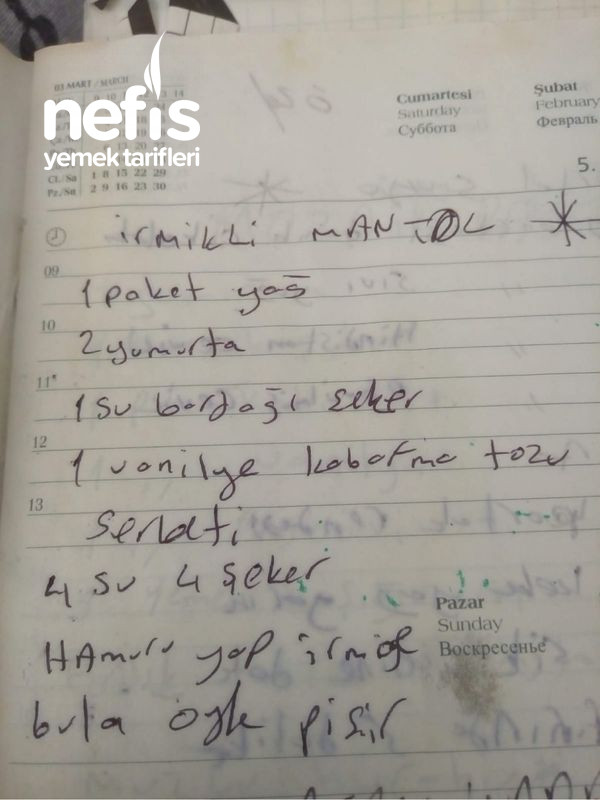 03 MART / MARCH
nefis
yemek tarifleri
Ct./Sa 1 8 15 22 29
Pz./Su 2 9 16 23 30
Cumartesi
Saturday
Суббота
Şubat
February
Февраль
5.
irmikli MAN
09
1 paket yağ
10
2 yumurta
11
1 su bardağı şeker
12
1 vanilye kabartma tozu
13
Şerbati
4 su 4 şeker
Pazar
Sunday
Воскресенье
HAmuru yap irmiğe
bula öyle pişir